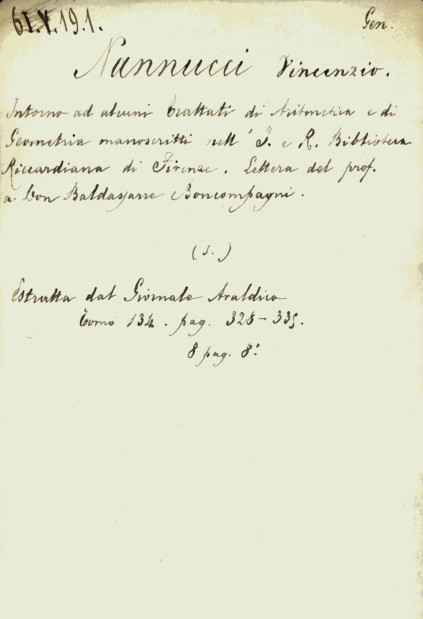 61.V.19.1.
Gen.
Nannucci Vincenzio.
Intorno ad alcuni Trattati di Aritmetica e di
Geometria manoscritti nell' I. e R. Biblioteca
Riccardiana di Firenze. Lettera del prof.
a Don Baldassarre Boncompagni.
(s.)
Estratta dal Giornale Araldico
Tomo 134. pag. 328-335.
8 pag. 8°